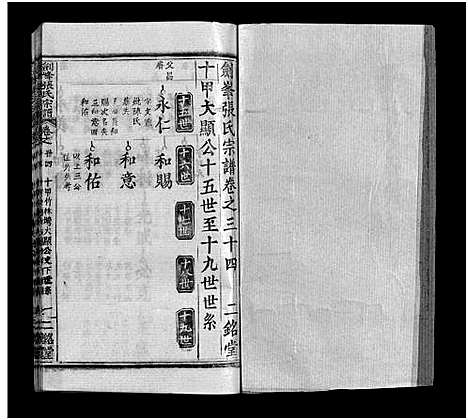 劍峯張氏宗譜卷之三十四 二銘堂
十甲大顯公十五世至十九世世系
十五世
十六世
十七世
十八世
十九世
父昌
永仁
和賜
和意
和佑
劍峯張氏宗譜
卷之
卅四
十甲竹林灣大顯公支下世系
一
二銘堂